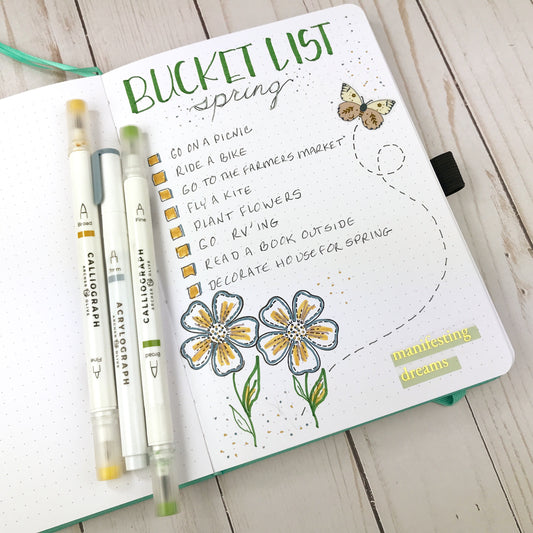 BUCKET LIST
spring
GO ON A PICNIC
RIDE A BIKE
GO TO THE FARMERS MARKET
FLY A KITE
PLANT FLOWERS
GO RV'ING
READ A BOOK OUTSIDE
DECORATE HOUSE FOR SPRING
manifesting
dreams
A
Broad
CALLIOGRAPH
Fine
A
A
ACRYLOGRAPH
A
Fine
CALLIOGRAPH
Broad
A